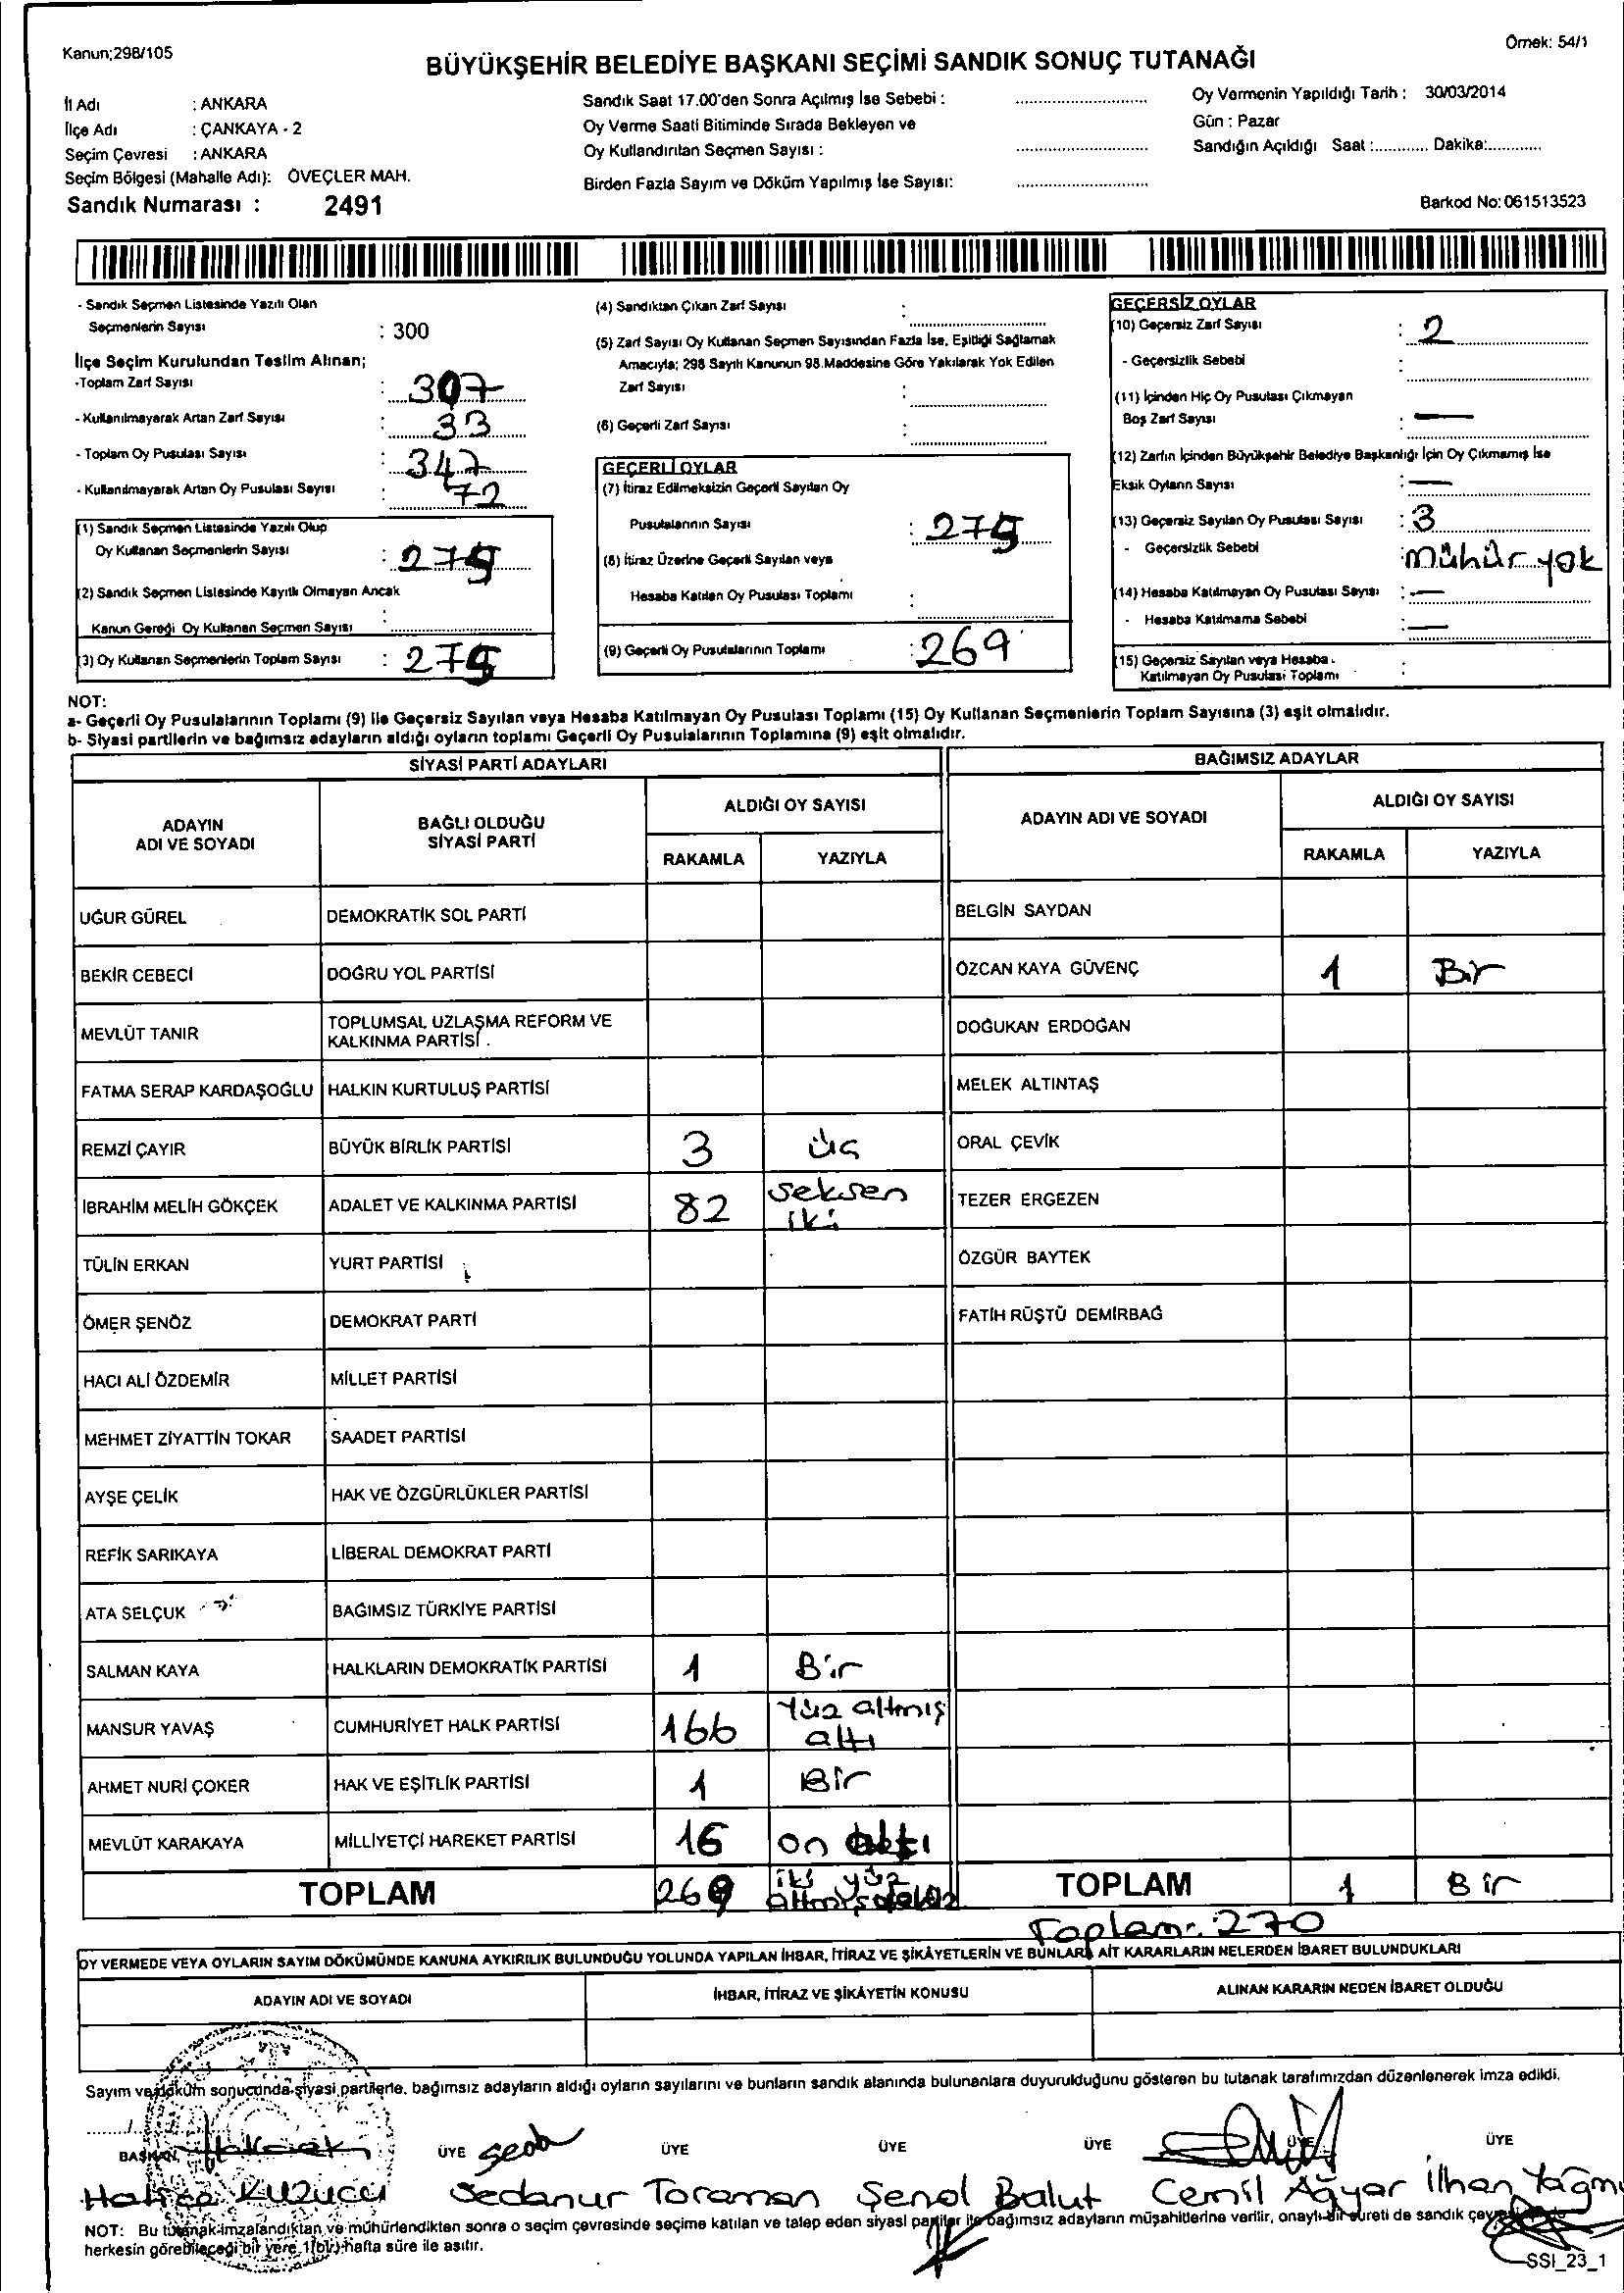 Kanun;298/105
Örnek: 54/1
BÜYÜKŞEHİR BELEDİYE BAŞKANI SEÇİMİ SANDIK SONUÇ TUTANAĞI
İl Adı : ANKARA
İlçe Adı : ÇANKAYA - 2
Seçim Çevresi : ANKARA
Seçim Bölgesi (Mahalle Adı): ÖVEÇLER MAH.
Sandık Numarası : 2491
Sandık Saat 17.00'den Sonra Açılmış İse Sebebi :
Oy Verme Saati Bitiminde Sırada Bekleyen ve
Oy Kullandırılan Seçmen Sayısı :
Birden Fazla Sayım ve Döküm Yapılmış İse Sayısı:
Oy Vermenin Yapıldığı Tarih : 30/03/2014
Gün : Pazar
Sandığın Açıldığı Saat :............ Dakika:............
Barkod No:061513523
- Sandık Seçmen Listesinde Yazılı Olan
Seçmenlerin Sayısı : 300
İlçe Seçim Kurulundan Teslim Alınan;
-Toplam Zarf Sayısı : 307
- Kullanılmayarak Artan Zarf Sayısı : 33
- Toplam Oy Pusulası Sayısı : 347
- Kullanılmayarak Artan Oy Pusulası Sayısı : 72
(1) Sandık Seçmen Listesinde Yazılı Olup
Oy Kullanan Seçmenlerin Sayısı : 275
(2) Sandık Seçmen Listesinde Kayıtlı Olmayan Ancak
Kanun Gereği Oy Kullanan Seçmen Sayısı :
(3) Oy Kullanan Seçmenlerin Toplam Sayısı : 275
(4) Sandıktan Çıkan Zarf Sayısı :
(5) Zarf Sayısı Oy Kullanan Seçmen Sayısından Fazla İse, Eşitliği Sağlamak
Amacıyla; 298 Sayılı Kanunun 98.Maddesine Göre Yakılarak Yok Edilen
Zarf Sayısı :
(6) Geçerli Zarf Sayısı :
GEÇERLİ OYLAR
(7) İtiraz Edilmeksizin Geçerli Sayılan Oy
Pusulalarının Sayısı : 275
(8) İtiraz Üzerine Geçerli Sayılan veya
Hesaba Katılan Oy Pusulası Toplamı :
(9) Geçerli Oy Pusulalarının Toplamı : 269
GEÇERSİZ OYLAR
(10) Geçersiz Zarf Sayısı : 2
- Geçersizlik Sebebi :
(11) İçinden Hiç Oy Pusulası Çıkmayan
Boş Zarf Sayısı : —
(12) Zarfın İçinden Büyükşehir Belediye Başkanlığı İçin Oy Çıkmamış İse
Eksik Oyların Sayısı : —
(13) Geçersiz Sayılan Oy Pusulası Sayısı : 3
- Geçersizlik Sebebi : mühür yok
(14) Hesaba Katılmayan Oy Pusulası Sayısı : —
- Hesaba Katılmama Sebebi : —
(15) Geçersiz Sayılan veya Hesaba
Katılmayan Oy Pusulası Toplamı :
NOT:
a- Geçerli Oy Pusulalarının Toplamı (9) ile Geçersiz Sayılan veya Hesaba Katılmayan Oy Pusulası Toplamı (15) Oy Kullanan Seçmenlerin Toplam Sayısına (3) eşit olmalıdır.
b- Siyasi partilerin ve bağımsız adayların aldığı oyların toplamı Geçerli Oy Pusulalarının Toplamına (9) eşit olmalıdır.
SİYASİ PARTİ ADAYLARI
BAĞIMSIZ ADAYLAR
ADAYIN
ADI VE SOYADI
BAĞLI OLDUĞU
SİYASİ PARTİ
ALDIĞI OY SAYISI
RAKAMLA YAZIYLA
ADAYIN ADI VE SOYADI
ALDIĞI OY SAYISI
RAKAMLA YAZIYLA
UĞUR GÜREL DEMOKRATİK SOL PARTİ
BELGİN SAYDAN
BEKİR CEBECİ DOĞRU YOL PARTİSİ
ÖZCAN KAYA GÜVENÇ 1 Bir
MEVLÜT TANIR TOPLUMSAL UZLAŞMA REFORM VE
KALKINMA PARTİSİ
DOĞUKAN ERDOĞAN
FATMA SERAP KARDAŞOĞLU HALKIN KURTULUŞ PARTİSİ
MELEK ALTINTAŞ
REMZİ ÇAYIR BÜYÜK BİRLİK PARTİSİ 3 üç
ORAL ÇEVİK
İBRAHİM MELİH GÖKÇEK ADALET VE KALKINMA PARTİSİ 82 seksen
iki
TEZER ERGEZEN
TÜLİN ERKAN YURT PARTİSİ
ÖZGÜR BAYTEK
ÖMER ŞENÖZ DEMOKRAT PARTİ
FATİH RÜŞTÜ DEMİRBAĞ
HACI ALİ ÖZDEMİR MİLLET PARTİSİ
MEHMET ZİYATTİN TOKAR SAADET PARTİSİ
AYŞE ÇELİK HAK VE ÖZGÜRLÜKLER PARTİSİ
REFİK SARIKAYA LİBERAL DEMOKRAT PARTİ
ATA SELÇUK BAĞIMSIZ TÜRKİYE PARTİSİ
SALMAN KAYA HALKLARIN DEMOKRATİK PARTİSİ 1 Bir
MANSUR YAVAŞ CUMHURİYET HALK PARTİSİ 166 Yüz altmış
altı
AHMET NURİ ÇOKER HAK VE EŞİTLİK PARTİSİ 1 Bir
MEVLÜT KARAKAYA MİLLİYETÇİ HAREKET PARTİSİ 16 on altı
TOPLAM 269 iki yüz
altmış dokuz
TOPLAM 1 Bir
Toplam: 270
OY VERMEDE VEYA OYLARIN SAYIM DÖKÜMÜNDE KANUNA AYKIRILIK BULUNDUĞU YOLUNDA YAPILAN İHBAR, İTİRAZ VE ŞİKÂYETLERİN VE BUNLARA AİT KARARLARIN NELERDEN İBARET BULUNDUKLARI
ADAYIN ADI VE SOYADI İHBAR, İTİRAZ VE ŞİKÂYETİN KONUSU ALINAN KARARIN NEDEN İBARET OLDUĞU
Sayım ve döküm sonucunda siyasi partilerle, bağımsız adayların aldığı oyların sayılarını ve bunların sandık alanında bulunanlara duyurulduğunu gösteren bu tutanak tarafımızdan düzenlenerek imza edildi.
BAŞKAN ÜYE Seda ÜYE ÜYE ÜYE ÜYE ÜYE
Hatice Kuzucu Sedanur Toraman Şenol Balut Cemil Ağyar İlhan
NOT: Bu tutanak imzalandıktan ve mühürlendikten sonra o seçim çevresinde seçime katılan ve talep eden siyasi partiler ile bağımsız adayların müşahitlerine verilir, onaylı bir sureti de sandık
herkesin görebileceği bir yere 1(bir) hafta süre ile asılır.
SSI_23_1